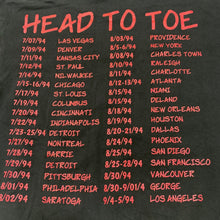 HEAD TO TOE
7/07/94 LAS VEGAS
7/09/94 DENVER
7/11/94 KANSAS CITY
7/12/94 ST. PAUL
7/14/94 MILWAUKEE
7/15-16/94 CHICAGO
7/17/94 ST. LOUIS
7/19/94 COLUMBUS
CINCINNATI
7/22/94 INDIANAPOLIS
7/23-25/94 DETROIT
7/27/94 MONTREAL
7/28/94 BARRIE
7/29/94 DETROIT
7/30/94 PITTSBURGH
8/01/94 PHILADELPHIA
8/02/94 SARATOGA
8/03/94 PROVIDENCE
8/5-6/94 NEW YORK
8/08/94 CHARLES TOWN
8/10/94 RALEIGH
8/11/94 CHARLOTTE
8/12-13/94 ATLANTA
8/15/94 MIAMI
DELAND
8/18/94 NEW ORLEANS
8/19/94 HOUSTON
8/20-21/94 DALLAS
8/24/94 PHOENIX
SAN DIEGO
SAN FRANCISCO
8/30/94 VANCOUVER
8/30-9/01/94 GEORGE
9/4-5/94 LOS ANGELES